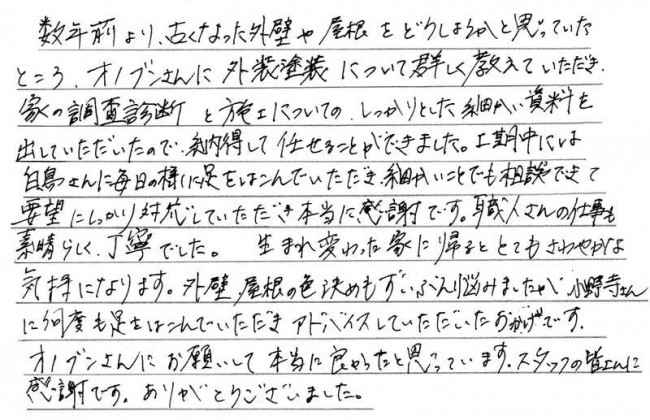 数年前より、古くなった外壁や屋根をどうしようかと思っていた
ところ、オノブンさんに外装塗装について詳しく教えていただき、
家の調査診断と施工についての、しっかりとした細かい資料を
出していただいたので、納得して任せることができました。工期中には
白鳥さんに毎日の様に足をはこんでいただき、細かいことでも相談できて
要望にしっかり対応していただき本当に感謝です。職人さんの仕事も
素晴らしく、丁寧でした。 生まれ変わった家に帰ると とてもさわやかな
気持になります。外壁、屋根の色決めもずいぶん悩みましたが、小野寺さん
に何度も足をはこんでいただき アドバイスしていただいたおかげです。
オノブンさんにお願いして本当に良かったと思っています。スタッフの皆さんに
感謝です。ありがとうございました。